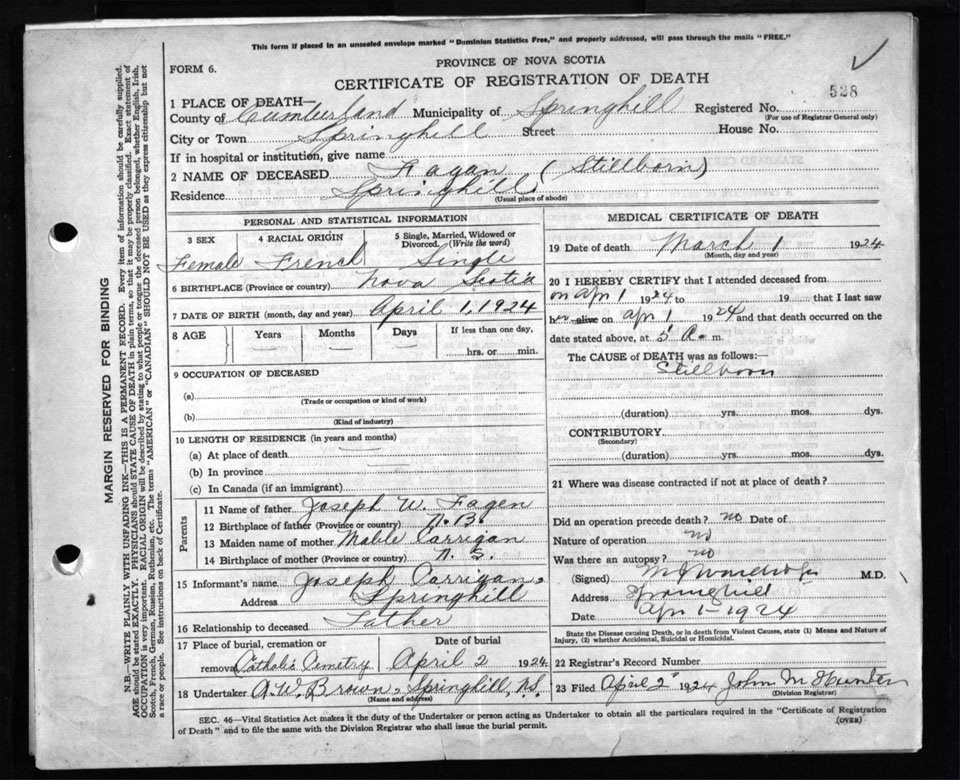 This form if placed in an unsealed envelope marked "Dominion Statistics Free," and properly addressed, will pass through the mails "FREE."
FORM 6.
PROVINCE OF NOVA SCOTIA
CERTIFICATE OF REGISTRATION OF DEATH
528
1 PLACE OF DEATH—
County of Cumberland Municipality of Springhill Registered No.
(For use of Registrar General only)
City or Town Springhill Street House No.
If in hospital or institution, give name
2 NAME OF DECEASED Fagan (Stillborn)
Residence Springhill
(Usual place of abode)
PERSONAL AND STATISTICAL INFORMATION
3 SEX 4 RACIAL ORIGIN 5 Single, Married, Widowed or Divorced. (Write the word)
Female French Single
6 BIRTHPLACE (Province or country) Nova Scotia
7 DATE OF BIRTH (month, day and year) April 1, 1924
8 AGE Years Months Days If less than one day,
hrs. or min.
9 OCCUPATION OF DECEASED
(a)
(Trade or occupation or kind of work)
(b)
(Kind of industry)
10 LENGTH OF RESIDENCE (in years and months)
(a) At place of death
(b) In province
(c) In Canada (if an immigrant)
Parents
11 Name of father Joseph W. Fagen
12 Birthplace of father (Province or country) N.B.
13 Maiden name of mother Mable Carrigan
14 Birthplace of mother (Province or country) N.S.
15 Informant's name Joseph Carrigan
Address Springhill
16 Relationship to deceased Father
17 Place of burial, cremation or removal Catholic Cemetry
Date of burial April 2 1924
18 Undertaker A.W. Brown, Springhill, N.S.
(Name and address)
MEDICAL CERTIFICATE OF DEATH
19 Date of death March 1 1924
(Month, day and year)
20 I HEREBY CERTIFY that I attended deceased from
on apr 1 1924 to 19 that I last saw
her alive on apr 1 1924 and that death occurred on the
date stated above, at 5 a. m.
The CAUSE OF DEATH was as follows:—
Stillborn
(duration) yrs. mos. dys.
CONTRIBUTORY
(Secondary)
(duration) yrs. mos. dys.
21 Where was disease contracted if not at place of death?
Did an operation precede death? no Date of
Nature of operation no
Was there an autopsy? no
(Signed) M.D.
Address Springhill
Date Apr 1- 1924
State the Disease causing Death, or in death from Violent Causes, state (1) Means and Nature of Injury, (2) whether Accidental, Suicidal or Homicidal.
22 Registrar's Record Number
23 Filed April 2 1924 John M Hunter
(Division Registrar)
SEC. 46—Vital Statistics Act makes it the duty of the Undertaker or person acting as Undertaker to obtain all the particulars required in the "Certificate of Registration
of Death" and to file the same with the Division Registrar who shall issue the burial permit.
(OVER)
MARGIN RESERVED FOR BINDING
N.B.—WRITE PLAINLY WITH UNFADING INK—THIS IS A PERMANENT RECORD. Every item of information should be carefully supplied.
AGE should be stated EXACTLY. PHYSICIANS should STATE CAUSE OF DEATH in plain terms, so that it may be properly classified. Exact statement of
OCCUPATION is very important. RACIAL ORIGIN will be described by stating to what people or tongue the deceased person belonged, whether English, Irish,
Scotch, French, German, Russian, Ruthenian, etc. The terms "AMERICAN" or "CANADIAN" SHOULD NOT BE USED as they express citizenship but not
a race or people. See instructions on back of Certificate.